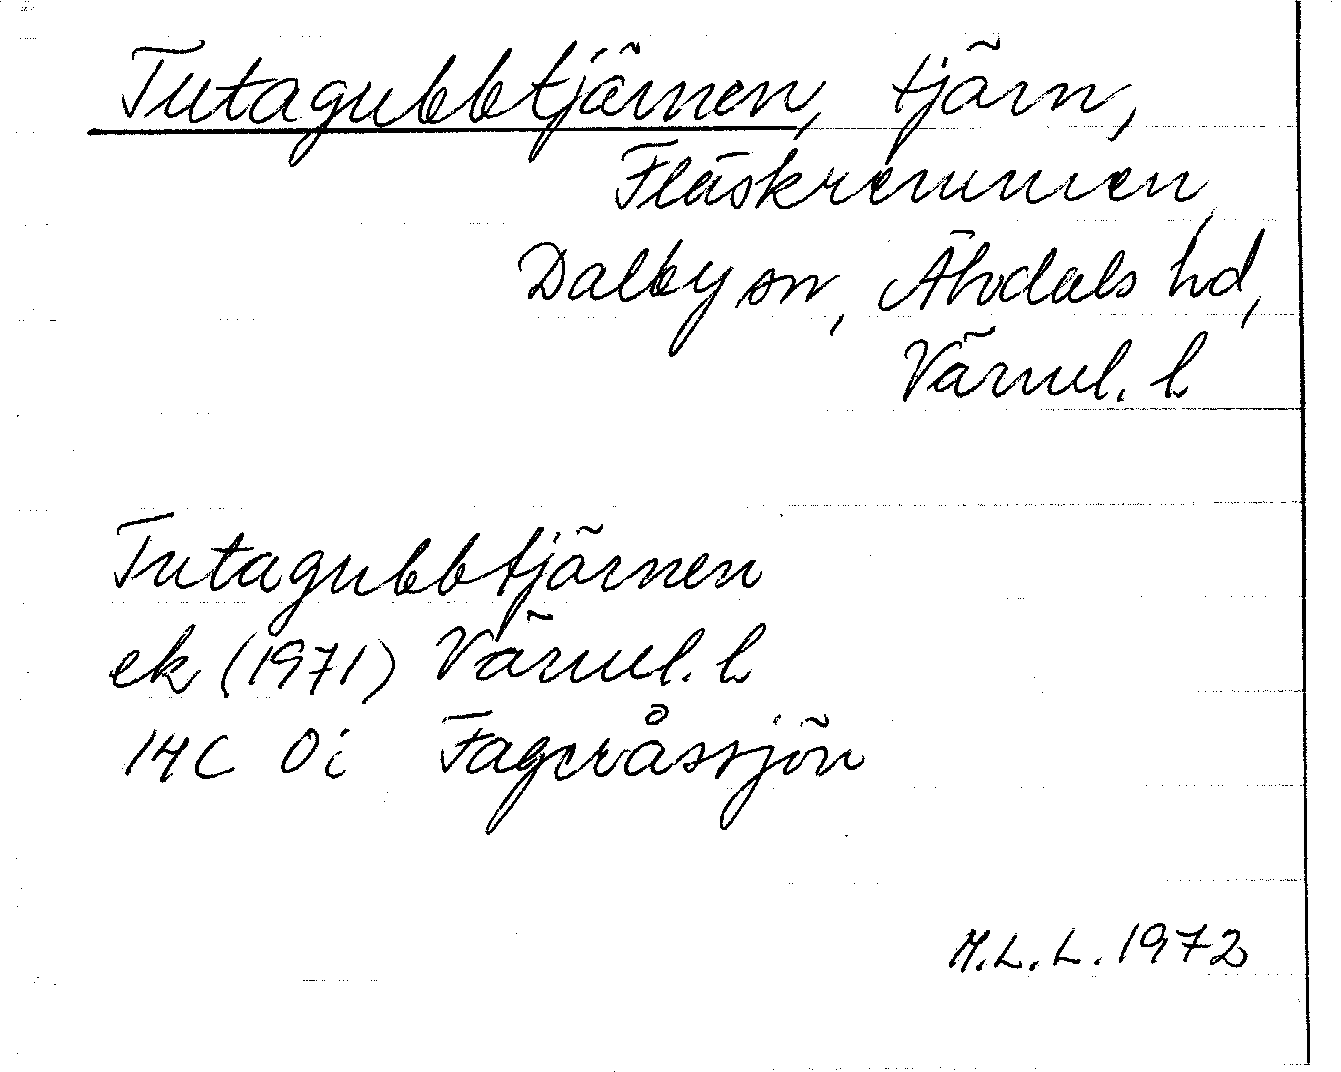 Tutagubbtjärnen, tjärn,
Fläskremmen,
Dalby sn, Älvdals hd,
Värml. l
Tutagubbtjärnen
ek (1971) Värml. l
14C 0i Fageråssjön
M.L.L. 1972